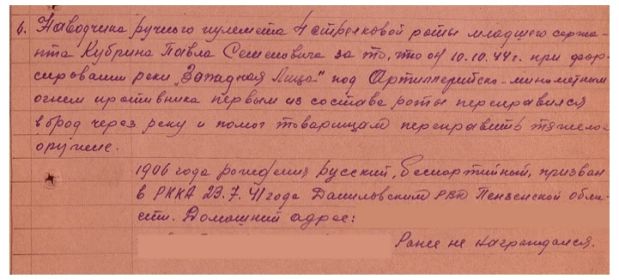 6. Наводчика ручного пулемета 4 стрелковой роты младшего сержа-
нта Кубрина Павла Семеновича за то, что он 10.10.44г. при фор-
сировании реки "Западная Лица" под Артиллерийско-минометным
огнем противника первым из состава роты переправился
вброд через реку и помог товарищам переправить тяжелое
оружие.
1906 года рождения русский, беспартийный, призван
в РККА 23.7.41 года Даниловским РВК Пензенской обла-
сти. Домашний адрес:
Ранее не награждался.